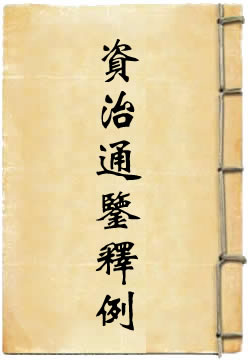 資治通鑒釋例